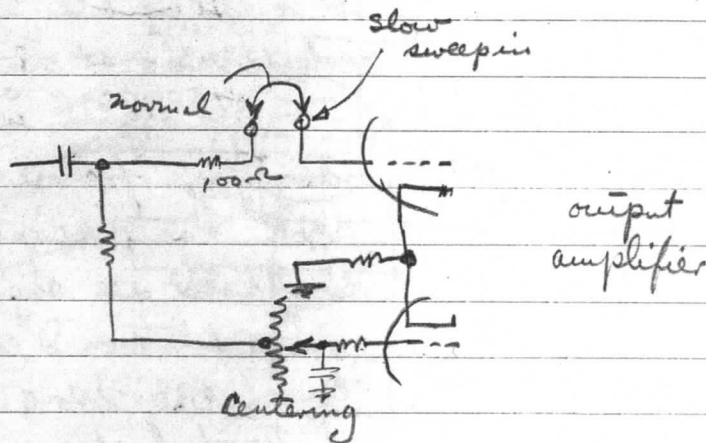 Slow
sweep in
normal
100Ω
output
amplifier
Centering